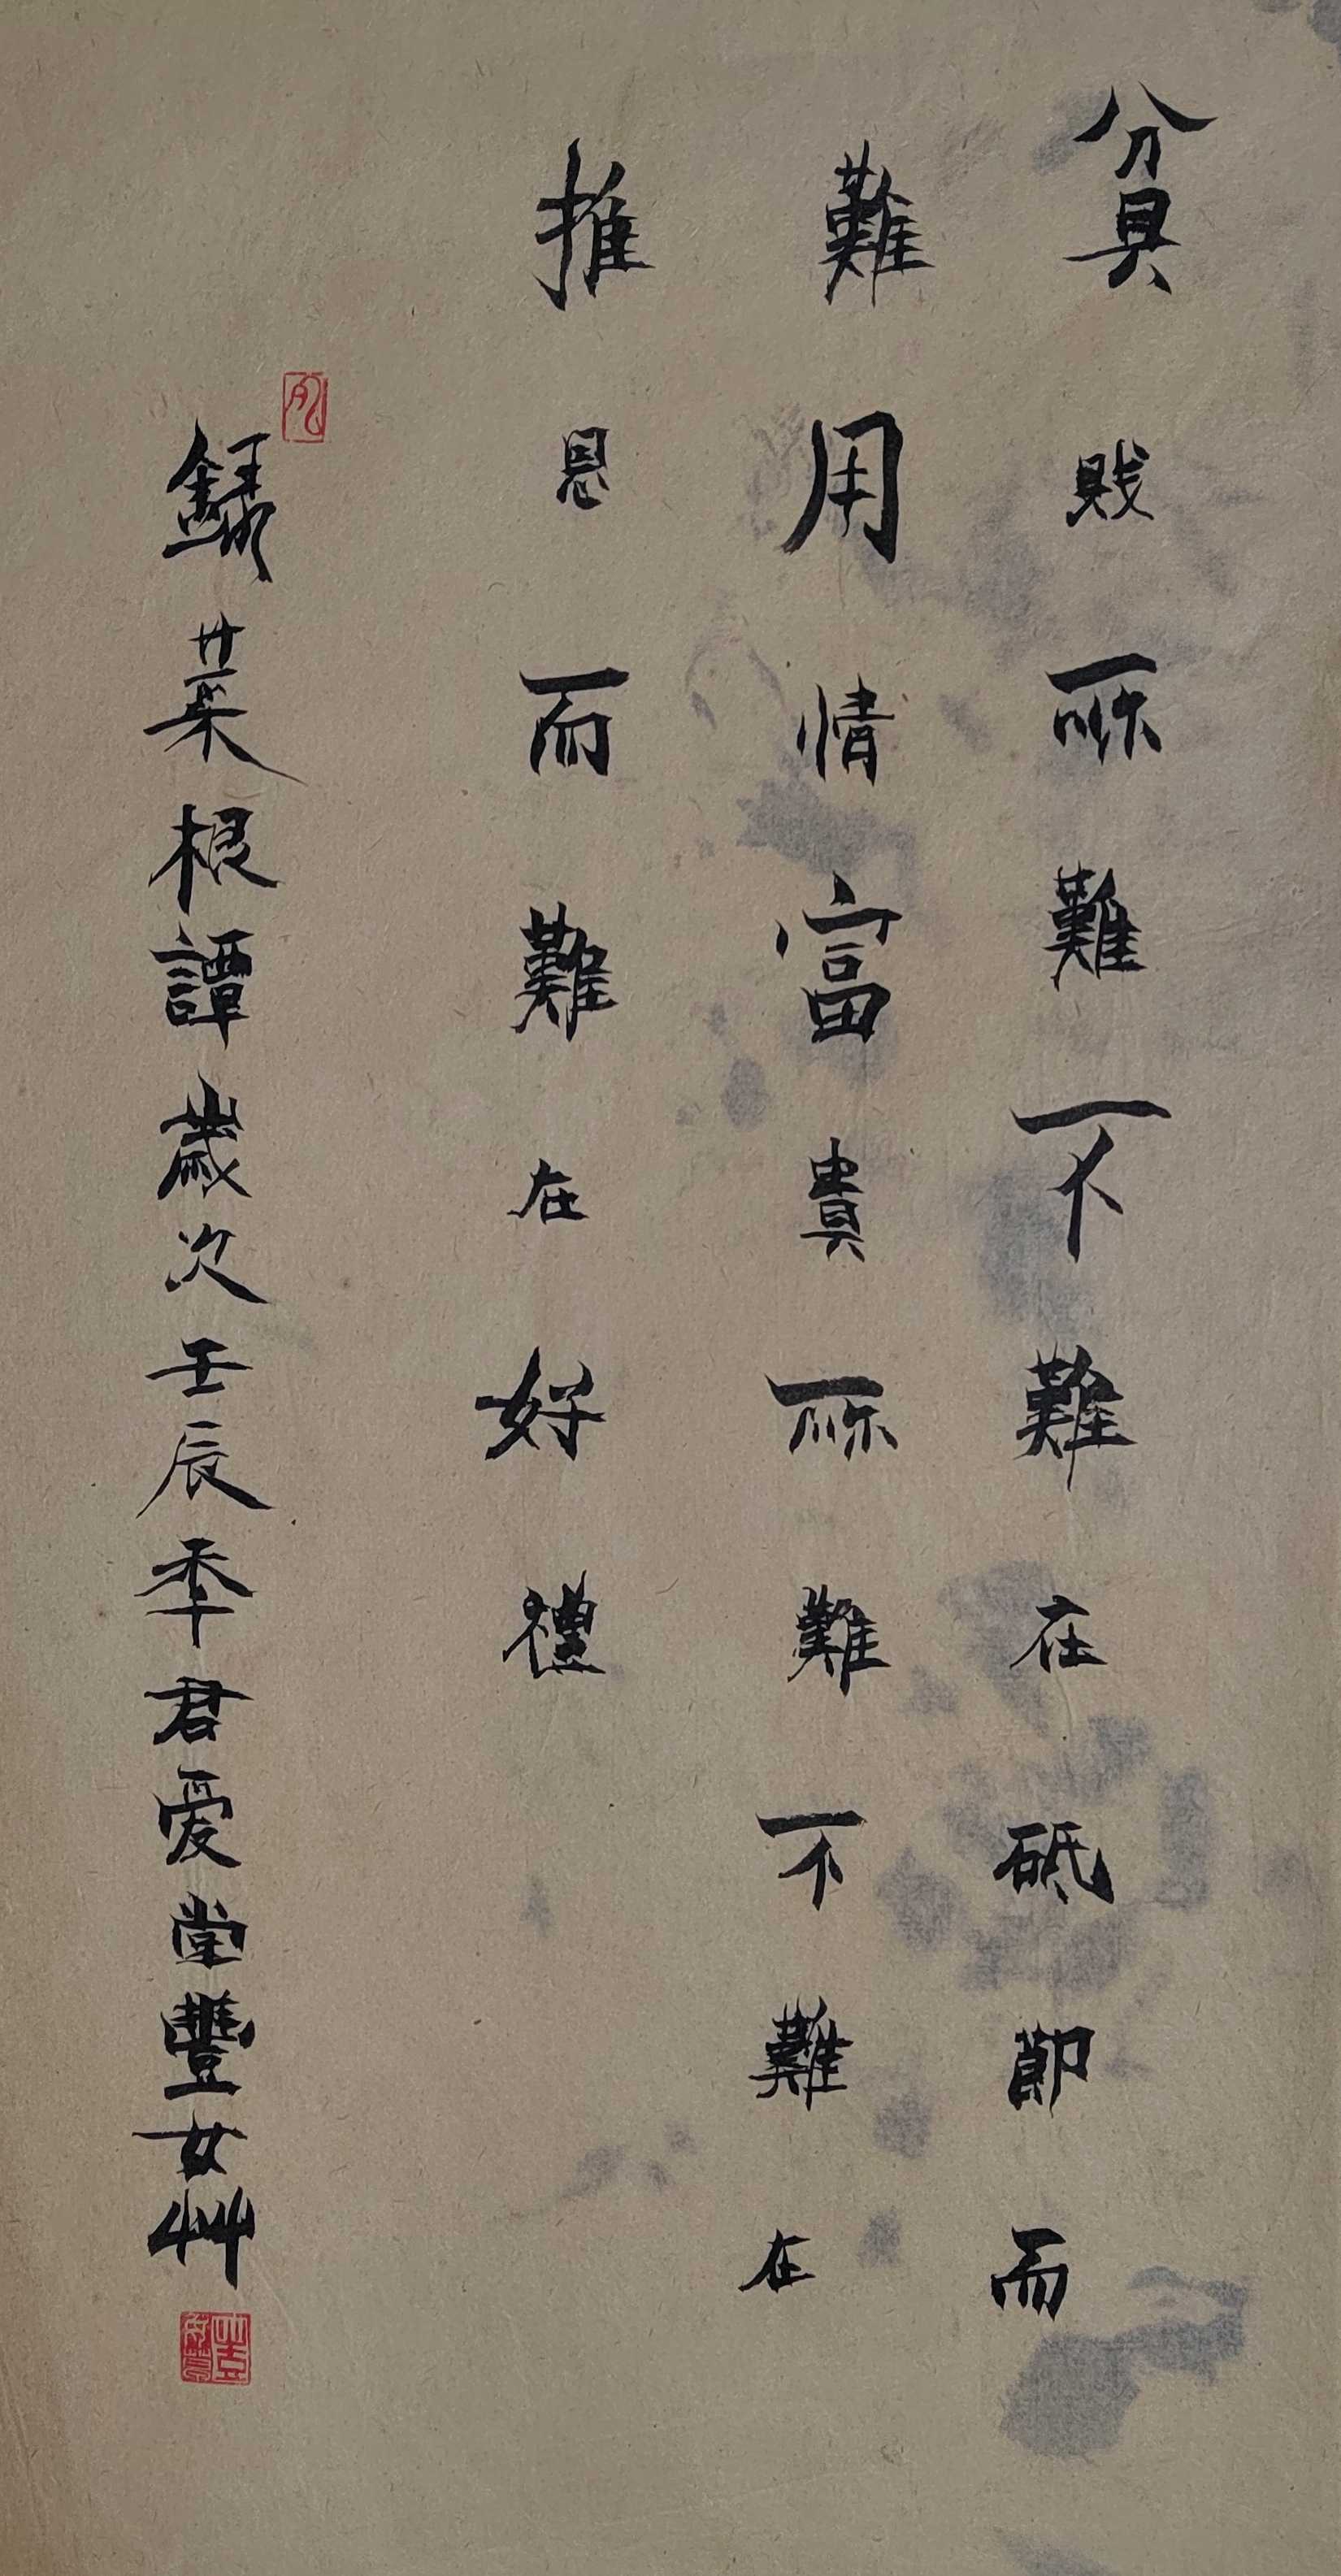 貧賤所難不難在砥節而
難用情富貴所難不難在
推恩而難在好禮
録菜根譚歲次壬辰秊君爱堂豐女艸